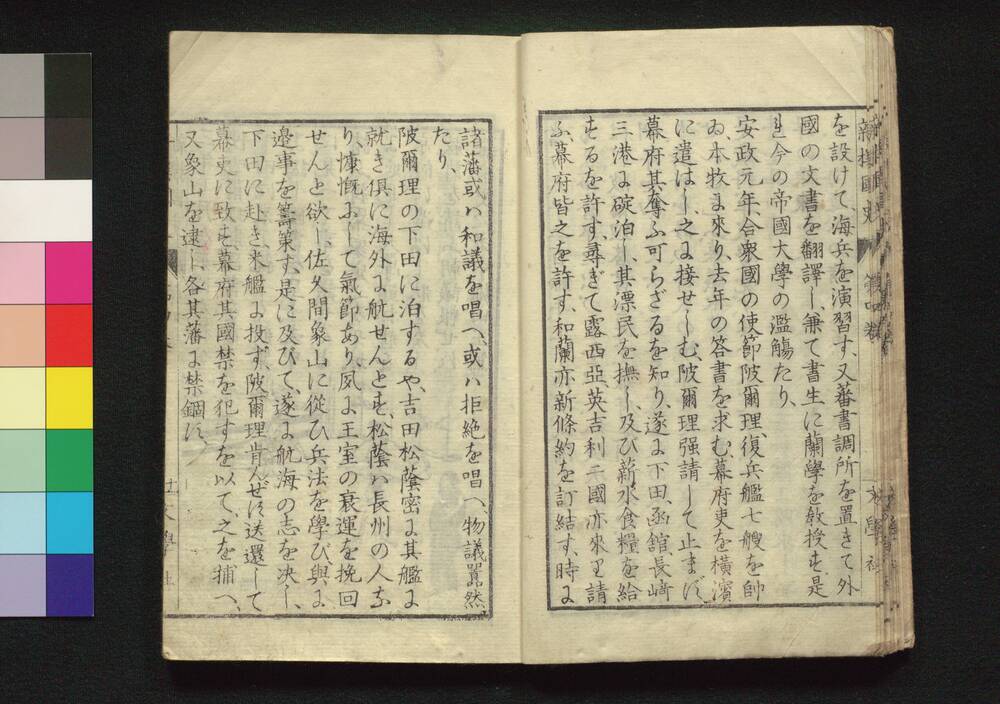 を設けて、海兵を演習す、又蕃書調所を置きて外
國の文書を翻譯し、兼て書生に蘭學を敎授す、是
れ今の帝國大學の濫觴たり、
安政元年、合衆國の使節陂爾理、復兵艦七艘を帥
ゐ、本牧に來り、去年の答書を求む、幕府吏を橫濱
に遣はし、之に接せしむ、陂爾理强請して止まず、
幕府其奪ふ可らざるを知り、遂に下田、函館、長崎
三港に碇泊し、其漂民を撫し、及び薪水食糧を給
するを許す、尋ぎて露西亞、英吉利二國亦來り請
ふ、幕府皆之を許す、和蘭亦新條約を訂結す、時に
諸藩或ハ和議を唱へ、或ハ拒絶を唱へ、物議囂然
たり、
陂爾理の下田に泊するや、吉田松蔭密に其艦に
就き俱に海外に航せんとす、松蔭ハ長州の人な
り、慷慨にして氣節あり、夙に王室の衰運を挽回
せんと欲し、佐久間象山に從ひ兵法を學び與に
邊事を籌策す、是に及びて、遂に航海の志を決し、
下田に赴き、米艦に投ず、陂爾理肯んぜず送還して
幕吏に致す、幕府其國禁を犯すを以て、之を捕へ、
又象山を逮し、各其藩に禁錮す、
文學社